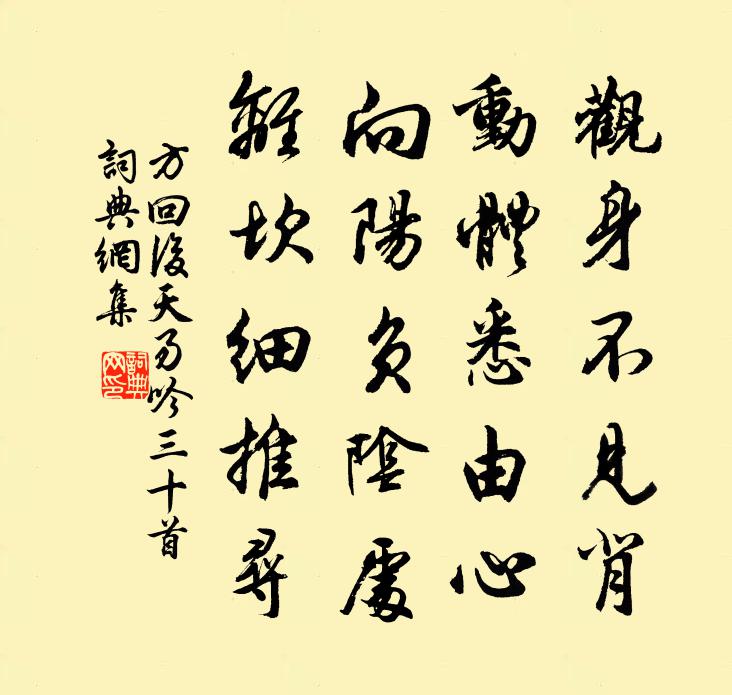 觀身不見背
動體悉由心
向陽負陰處
離坎細推尋
方回後天易吟三十首
詞典網集
詞典網印